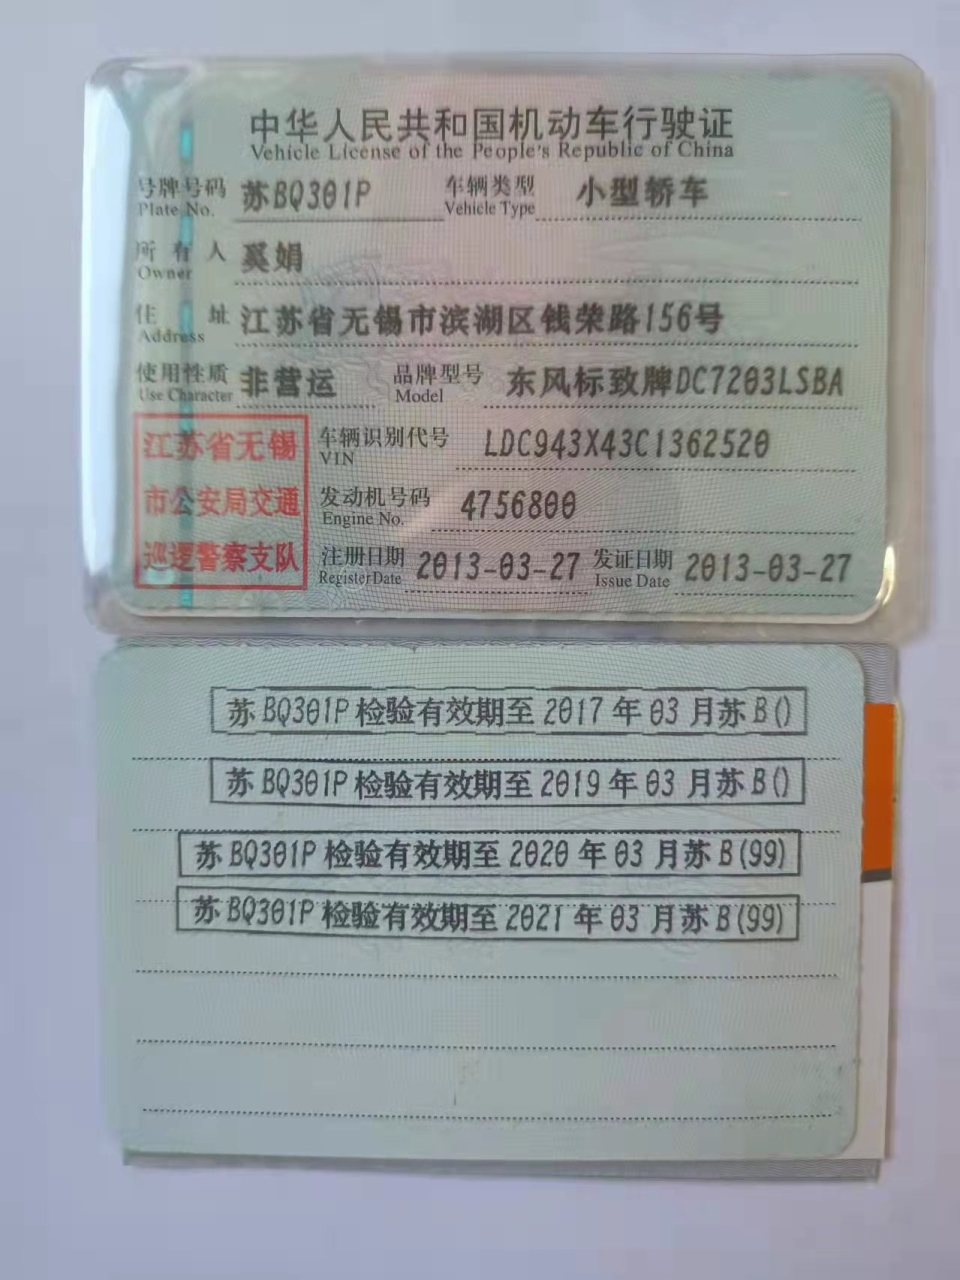 中华人民共和国机动车行驶证
Vehicle License of the People's Republic of China
号牌号码 苏BQ301P 车辆类型 小型轿车
Plate No. Vehicle Type
所有人 奚娟
Owner
住址 江苏省无锡市滨湖区钱荣路156号
Address
使用性质 非营运 品牌型号 东风标致牌DC7203LSBA
Use Character Model
江苏省无锡
市公安局交通
巡逻警察支队
车辆识别代号 LDC943X43C1362520
VIN
发动机号码 4756800
Engine No.
注册日期 2013-03-27 发证日期 2013-03-27
Register Date Issue Date
苏BQ301P检验有效期至2017年03月苏B()
苏BQ301P检验有效期至2019年03月苏B()
苏BQ301P检验有效期至2020年03月苏B(99)
苏BQ301P检验有效期至2021年03月苏B(99)